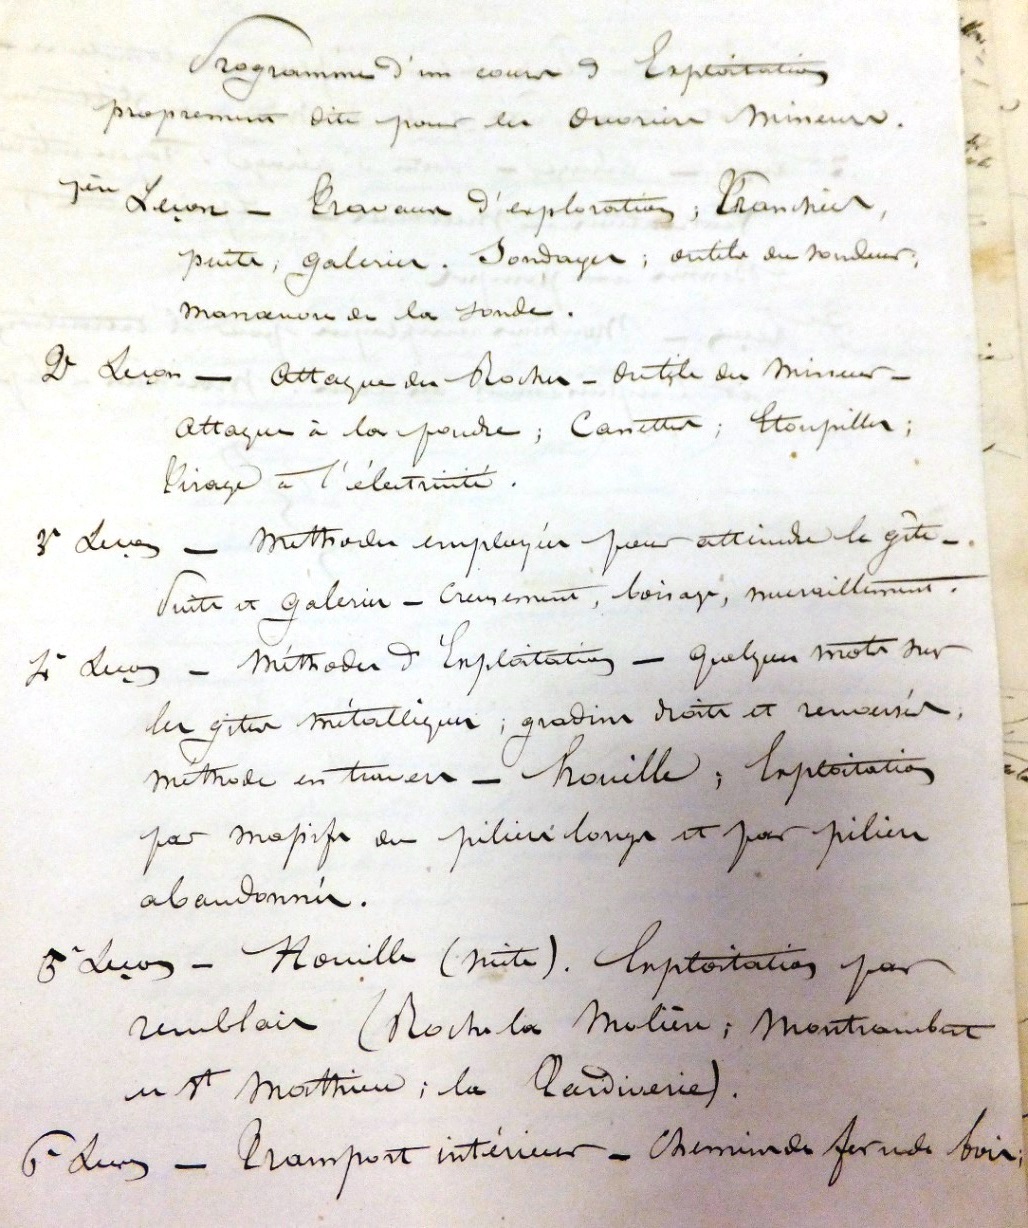 Programme d'un cours d'Exploitation
proprement dite pour les ouvriers mineurs.
1ère Leçon — Travaux d'exploration; Tranchées,
puits, galeries. Sondages; outils du sondeur;
manœuvre de la sonde.
2e Leçon — Attaque des Roches – Outils du Mineur –
Attaque à la poudre; Canettes; Etoupilles;
Tirage à l'électricité.
3e Leçon — Méthodes employées pour atteindre le gîte –
Puits et Galeries – Creusement, boisage, muraillement.
4e Leçon — Méthodes d'Exploitation — quelques mots sur
les gîtes métalliques; gradins droits et renversés,
méthode en travers — houille; Exploitation
par massifs ou piliers longs et par piliers
abandonnés.
5e Leçon — Houille (suite). Exploitation par
remblais (Roche la Molière; Montrambert
et St Mathieu; la Tardiverie).
6e Leçon — Transport intérieur — Chemins de fer et de bois;